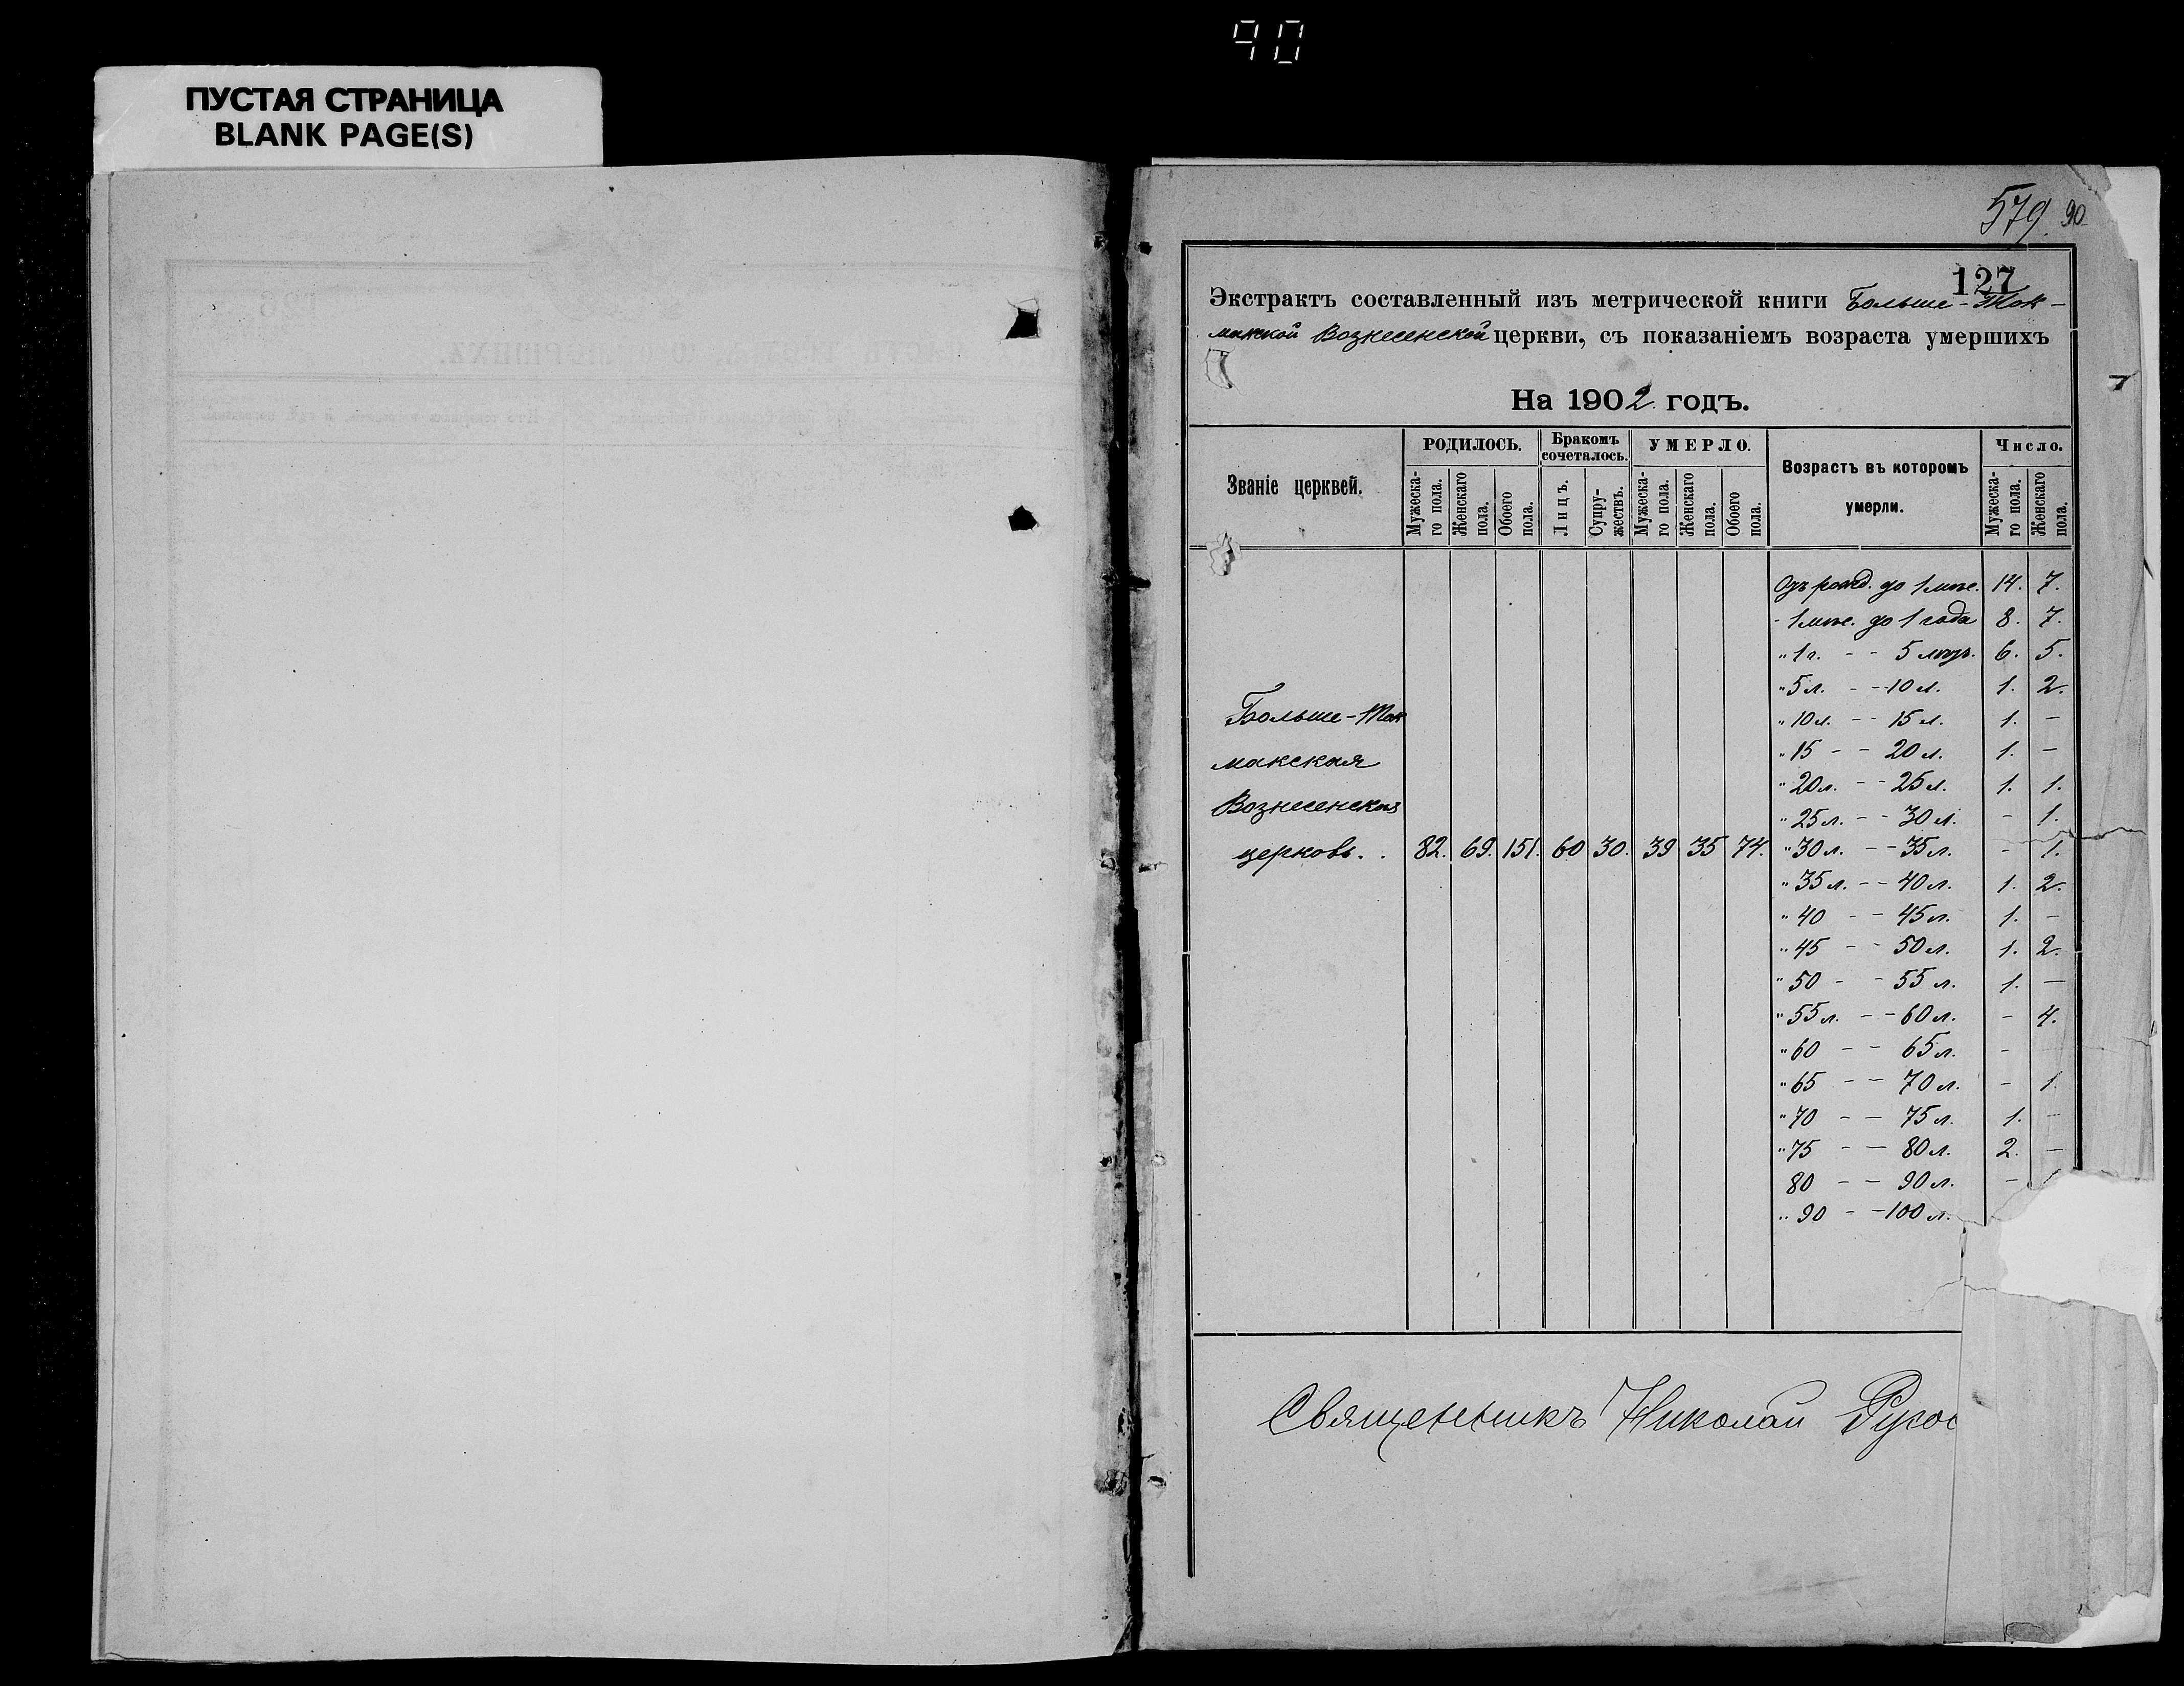 90
ПУСТАЯ СТРАНИЦА
BLANK PAGE(S)
579. 90.
127
Экстрактъ составленный изъ метрической книги Больше-Ток-
макской Вознесенской церкви, съ показаніемъ возраста умершихъ
На 1902 годъ.
Званіе церквей.
РОДИЛОСЬ.
Мужеска-го пола.
Женскаго пола.
Обоего пола.
Бракомъ сочеталось.
Лицъ.
Супру-жествъ.
УМЕРЛО.
Мужеска-го пола.
Женскаго пола.
Обоего пола.
Возрастъ въ которомъ умерли.
Число.
Мужеска-го пола.
Женскаго пола.
Отъ рожд. до 1 мѣс. 14. 7.
- 1 мѣс. до 1 года 8. 7.
" 1 г. - - 5 лѣтъ. 6. 5.
" 5 л. - - 10 л. 1. 2.
Больше-Ток
" 10 л. - - 15 л. 1. -
макская
" 15 - - 20 л. 1. -
" 20 л. - - 25 л. 1. 1.
Вознесенская
" 25 л. - - 30 л. - 1.
церковь. . 82. 69. 151. 60 30. 39 35 74. " 30 л. - - 35 л. - 1.
" 35 л. - - 40 л. 1. 2.
" 40 - - 45 л. 1. -
" 45 - - 50 л. 1. 2.
" 50 - - 55 л. 1. -
" 55 л. - - 60 л. - 4.
" 60 - - 65 л. -
" 65 - - 70 л. - 1
" 70 - - 75 л. 1. -
" 75 - - 80 л. 2. -
80 - - 90 л. - 1
" 90 - - 100 л.
Священникъ Николай